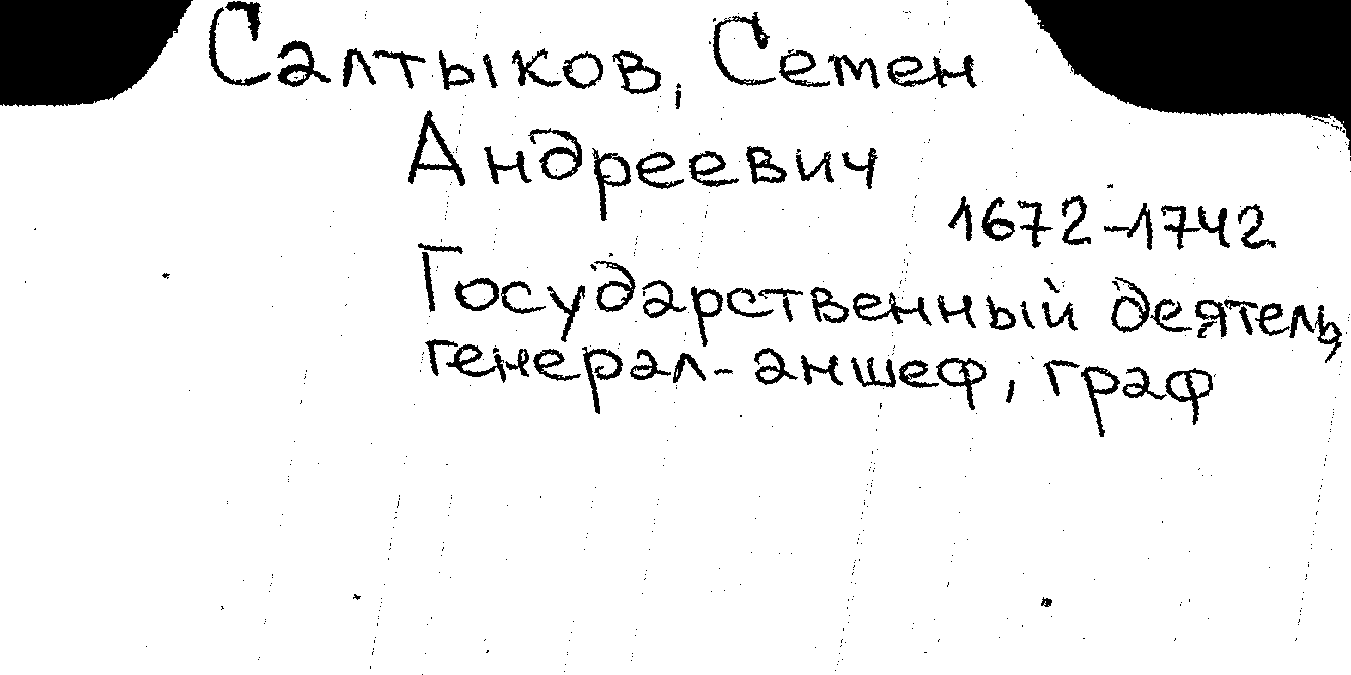 Салтыков, Семен
Андреевич
1672-1742
Государственный деятель,
генерал-аншеф, граф